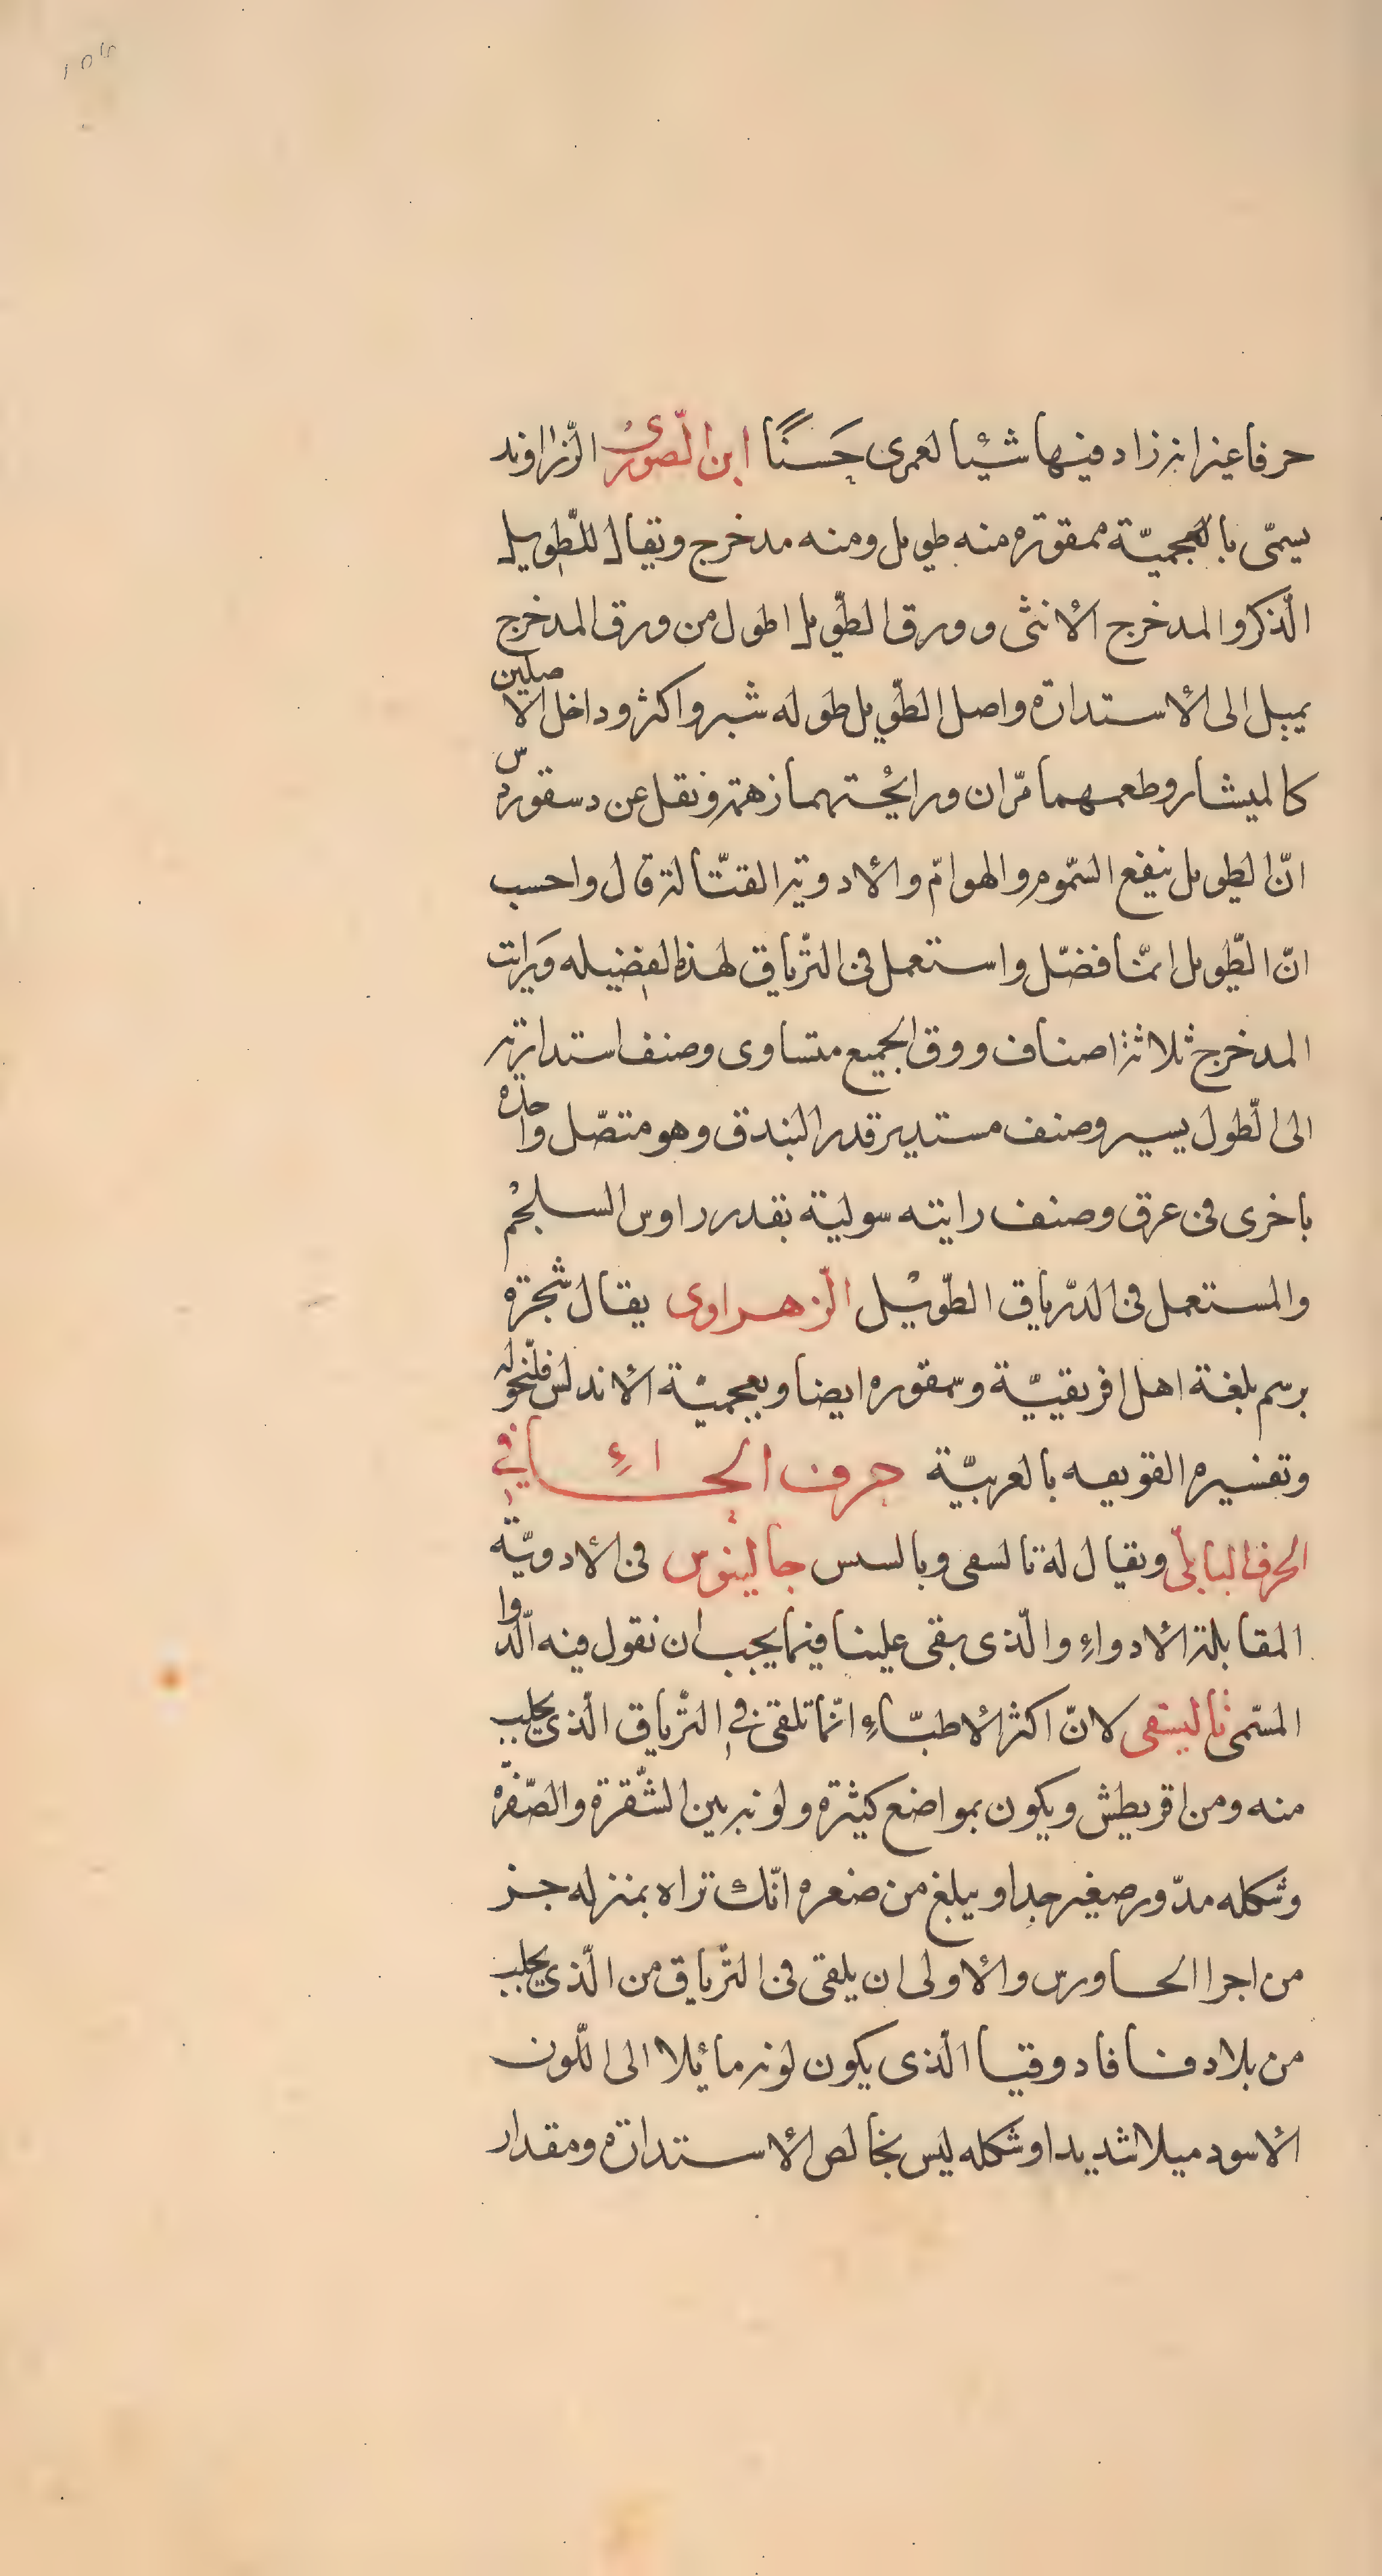 حرفا غير انه زاد فيها شيئا لعمرى حَسَنًا ابن الصورىُ الزراوند
يسمّى بالعجميّة ممقوره منه طويل ومنه مدخرج ويقال للطّويل
الّذكر والمدخرج الأنثى وورق الطّويل اطول من ورق المدخرج
يميل الى الأستدارة واصل الطّويل طوله شبر واكثر وداخل الاصلين
كالميشار وطعمهما مرّان ورائحتهما زهمة ونقل عن دسقوردس
انّ الطويل ينفع السّموم والهوامّ والأدوية القتّالة قال واحسب
انّ الطّويل انمّا فضّل واستعمل فى التّرياق لهذه الفضيله وَرايت
المدخرج ثلاثة اصناف وورق الجميع متساوى وصنف استدارته
الى الطّول يسير وصنف مستدير قدر البندق وهو متصّل واحده
باخرى فى عرق وصنف رايته سولية بقدر راوس السلجم
والمستعمل فى الدّرياق الطّويل الزهراوى يقال شجرة
برسم بلغة اهل افريقيّة وسمقوره ايضا وبعجميّة الأندلس فلّنحوله
وتفسيره القويعه بالعربيّة حرف الحاءِ فى
الحرف البابلّى ويقال له تالسفى وبالسس جالينوس فى الأدويّة
المقابلة الأدواءِ والّذى بقى علينا فيما يجب ان نقول فيه الدّوا
المسّمى ثاليسفى لانّ اكثر الأطبّاءِ انّما تلقى فى التّرياق الّذى يجلب
منه ومن اقريطش ويكون بمواضع كثيرة ولونه بين الشّقرة والصّفرّه
وشكله مدّور صغير جدا ويبلغ من صغره انّك تراه بمنزله جز
من اجرا الحاورس والأولى ان يلقى فى التّرياق من الّذى يجلب
من بلاد فافادوقيا الّذى يكون لونه مائلا الى اللّون
الأسود ميلا شديدا وشكله ليس بخالص الأستدارة ومقدار